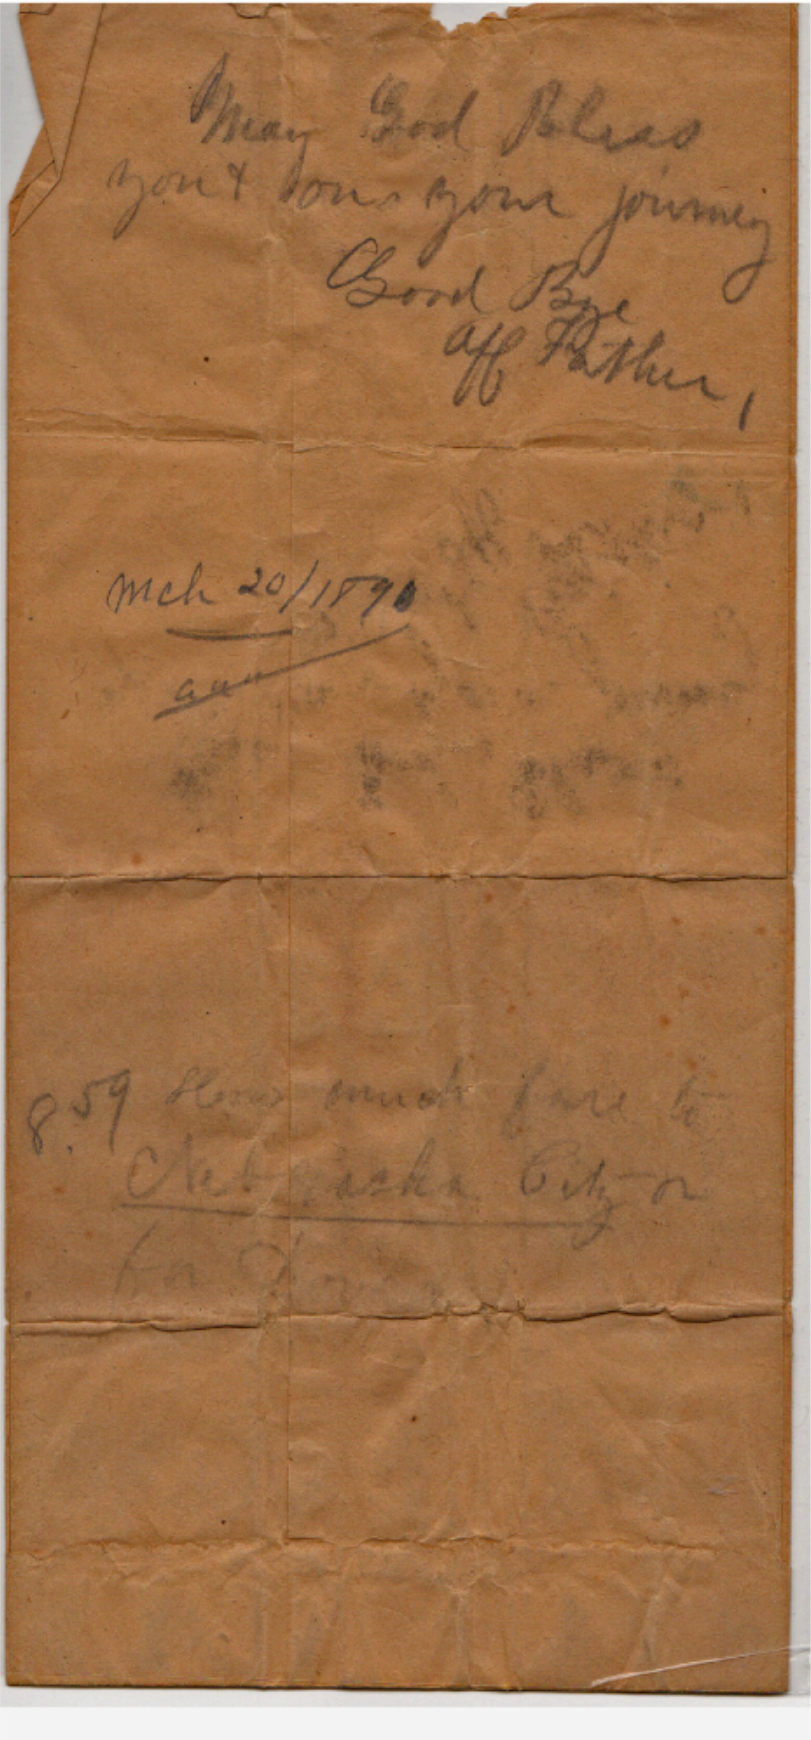 May God Bless
you & ons your journey
Good Bye
Aff Father,
Mch 20/1890
8.59 How much fare to
Nebraska City or
for